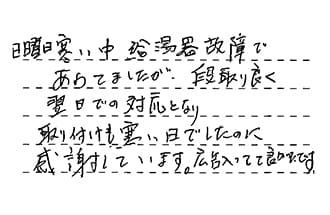 日曜日寒い中 給湯器故障で
あわてましたが、段取り良く
翌日での対応となり
取り付けも寒い日でしたのに
感謝しています。広告入ってて良かったです。